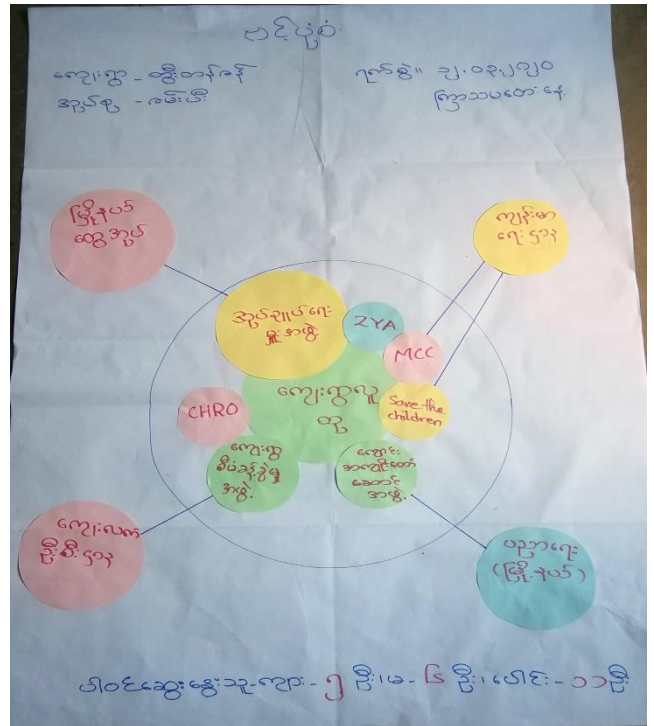 ဗင်ပုံစံ
ကျေးရွာ - တွီးတန်ဇန်
ရက်စွဲ။ ၃၂.၀၃.၂၀၂၀
အုပ်စု - ဇမ်းပီး
ကြာသပတေးနေ့
မြို့နယ်
ထွေအုပ်
ကျန်းမာ
ရေးဌာန
အုပ်ချုပ်ရေး
မှူးအဖွဲ့
ZYA
MCC
ကျေးရွာလူ
ထု
Save the
children
CHRO
ကျေးရွာ
စီမံခန့်ခွဲမှု
အဖွဲ့
ကျောင်း
အကျိုးတော်
ဆောင်
အဖွဲ့
ကျေးလက်
ဦးစီးဌာန
ပညာရေး
(မြို့နယ်)
ပါဝင်ဆွေးနွေးသူ-ကျား- ၅ ဦး၊ မ- ၆ ဦး၊ ပေါင်း- ၁၁ ဦး